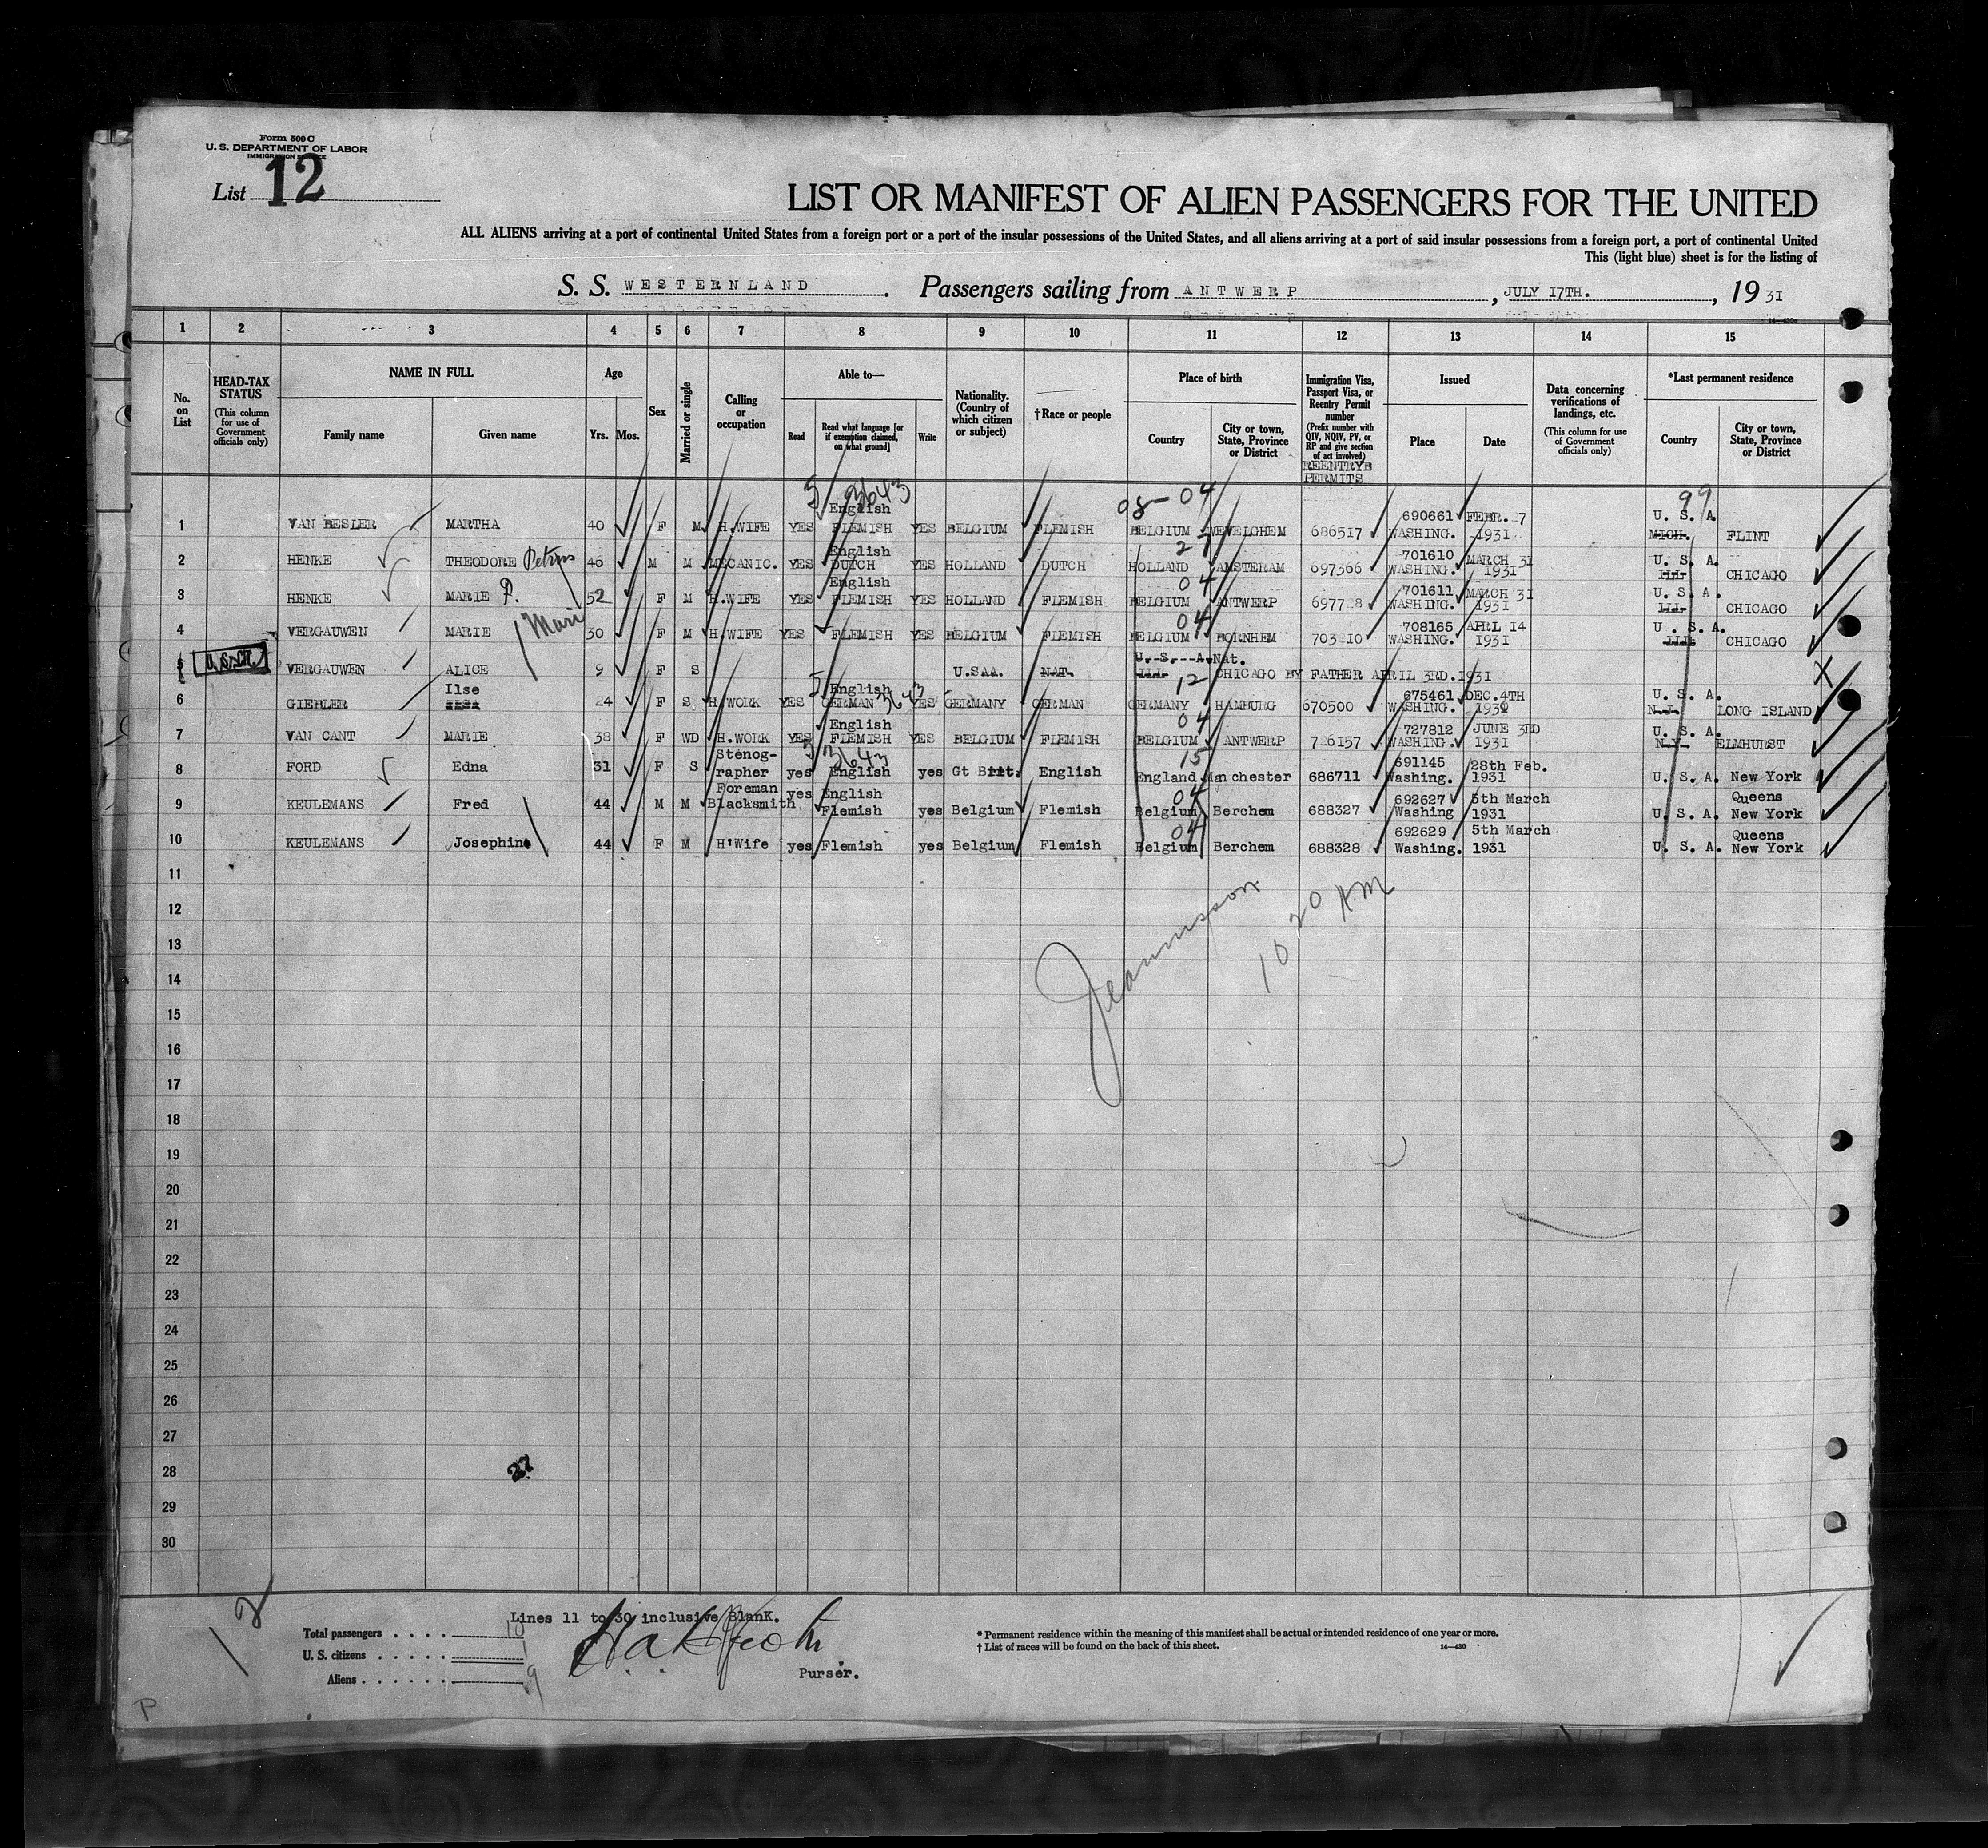 Form 500 C
U. S. DEPARTMENT OF LABOR
IMMIGRATION SERVICE
List 12
LIST OR MANIFEST OF ALIEN PASSENGERS FOR THE UNITED
ALL ALIENS arriving at a port of continental United States from a foreign port or a port of the insular possessions of the United States, and all aliens arriving at a port of said insular possessions from a foreign port, a port of continental United
This (light blue) sheet is for the listing of
S. S. WESTERNLAND. Passengers sailing from ANTWERP, JULY 17TH., 19 31
1 2 3 4 5 6 7 8 9 10 11 12 13 14 15
No. on List
HEAD-TAX STATUS (This column for use of Government officials only)
NAME IN FULL
Family name Given name
Age
Yrs. Mos.
Sex
Married or single
Calling or occupation
Able to—
Read Read what language [or if exemption claimed, on what ground] Write
Nationality. (Country of which citizen or subject)
†Race or people
Place of birth
Country City or town, State, Province or District
Immigration Visa, Passport Visa, or Reentry Permit number (Prefix number with QIV, NQIV, PV, or RP and give section of act involved)
REENTRYB PERMITS
Issued
Place Date
Data concerning verifications of landings, etc. (This column for use of Government officials only)
*Last permanent residence
Country City or town, State, Province or District
3 3643 08-04 99
English 690661 FEBR. 27 U. S. A.
1 VAN BESLER MARTHA 40 F M H.WIFE YES FLEMISH YES BELGIUM FLEMISH BELGIUM WEVELGHEM 686517 WASHING. 1931 MICH. FLINT
English 27 701610 MARCH 31 U. S. A.
2 HENKE THEODORE Petrus 46 M M MECANIC. YES DUTCH YES HOLLAND DUTCH HOLLAND AMSTERAM 697566 WASHING. 1931 ILL. CHICAGO
English 04 701611 MARCH 31 U. S. A.
3 HENKE MARIE P. 52 F M H.WIFE YES FLEMISH YES HOLLAND FLEMISH BELGIUM ANTWERP 697728 WASHING. 1931 ILL. CHICAGO
04 708165 APRIL 14 U. S. A.
4 VERGAUWEN MARIE 30 F M H.WIFE YES FLEMISH YES BELGIUM FLEMISH BELGIUM BORNHEM 703210 WASHING. 1931 ILL. CHICAGO
U. S. A. Nat.
5 U.S.Cit. VERGAUWEN ALICE 9 F S U.SAA. NAT. ILL. CHICAGO BY FATHER APRIL 3RD.1931
Ilse 5 English 3643 12 675461 DEC.4TH U. S. A.
6 GIEHLER ILSA 24 F S H.WORK YES GERMAN YES GERMANY GERMAN GERMANY HAMBURG 670500 WASHING. 1930 N.J. LONG ISLAND
English 04 727812 JUNE 3RD U. S. A.
7 VAN CANT MARIE 38 F WD H.WORK YES FLEMISH YES BELGIUM FLEMISH BELGIUM ANTWERP 726157 WASHING. 1931 N.Y. ELMHURST
Stenog- 3 3643 15 691145 28th Feb.
8 FORD Edna 31 F S rapher yes English yes Gt Brit. English England Manchester 686711 Washing. 1931 U. S. A. New York
Foreman yes English 04 692627 5th March Queens
9 KEULEMANS Fred 44 M M Blacksmith Flemish yes Belgium Flemish Belgium Berchem 688327 Washing 1931 U. S. A. New York
04 692629 5th March Queens
10 KEULEMANS Josephine 44 F M H'Wife yes Flemish yes Belgium Flemish Belgium Berchem 688328 Washing. 1931 U. S. A. New York
11
12
10 20 AM
13
14
15
16
17
18
19
20
21
22
23
24
25
26
27
28 27
29
30
Lines 11 to 30 inclusive BlanK.
Total passengers 10
U. S. citizens 1
Aliens 9
Purser.
* Permanent residence within the meaning of this manifest shall be actual or intended residence of one year or more.
† List of races will be found on the back of this sheet.
14—430
P